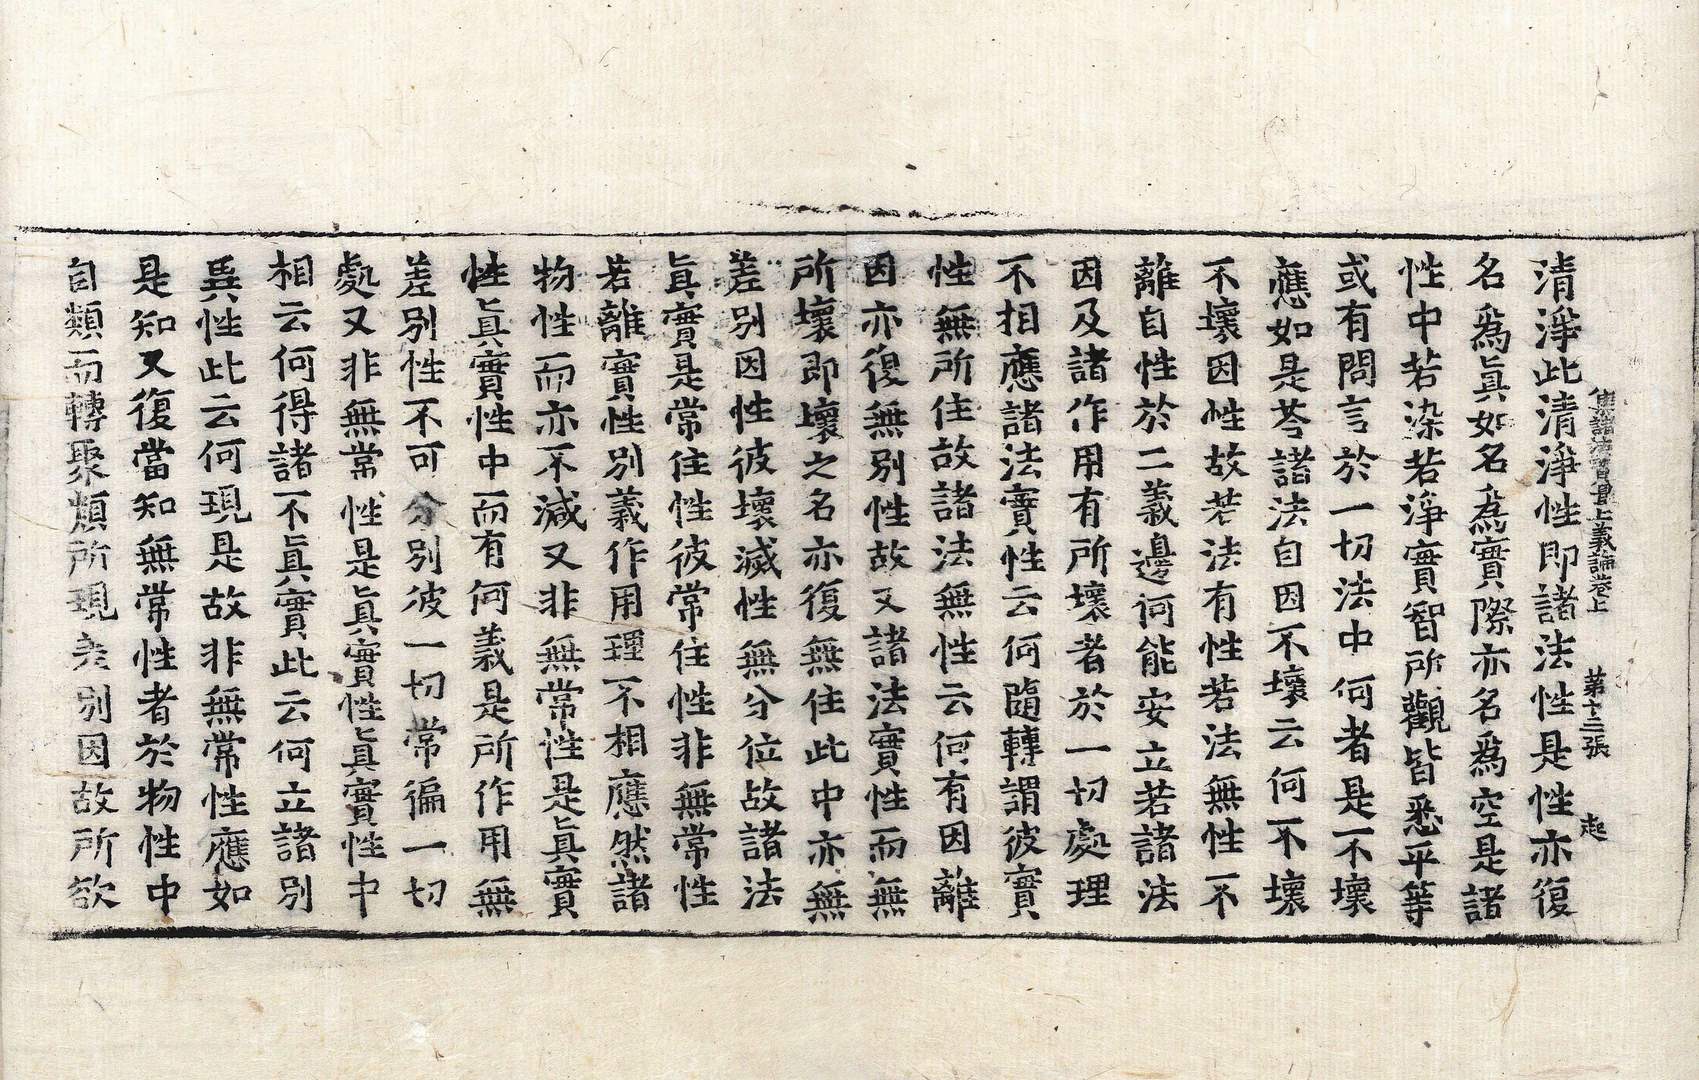 集諸法寶最上義論卷上　第十三張　起
清淨此清淨性即諸法性是性亦復
名爲眞如名爲實際亦名爲空是諸
性中若染若淨實智所觀皆悉平等
或有問言於一切法中何者是不壞
應如是荅諸法自因不壞云何不壞
不壞因性故若法有性若法無性不
離自性於二義邊何能安立若諸法
因及諸作用有所壞者於一切處理
不相應諸法實性云何隨轉謂彼實
性無所住故諸法無性云何有因離
因亦復無別性故又諸法實性而無
所壞即壞之名亦復無住此中亦無
差別因性彼壞滅性無分位故諸法
眞實是常住性彼常住性非無常性
若離實性別義作用理不相應然諸
物性而亦不減又非無常性是眞實
性眞實性中而有何義是所作用無
差別性不可分別彼一切常徧一切
處又非無常性是眞實性眞實性中
相云何得諸不眞實此云何立諸別
異性此云何現是故非無常性應如
是知又復當知無常性者於物性中
自類而轉聚類所現差別因故所欲